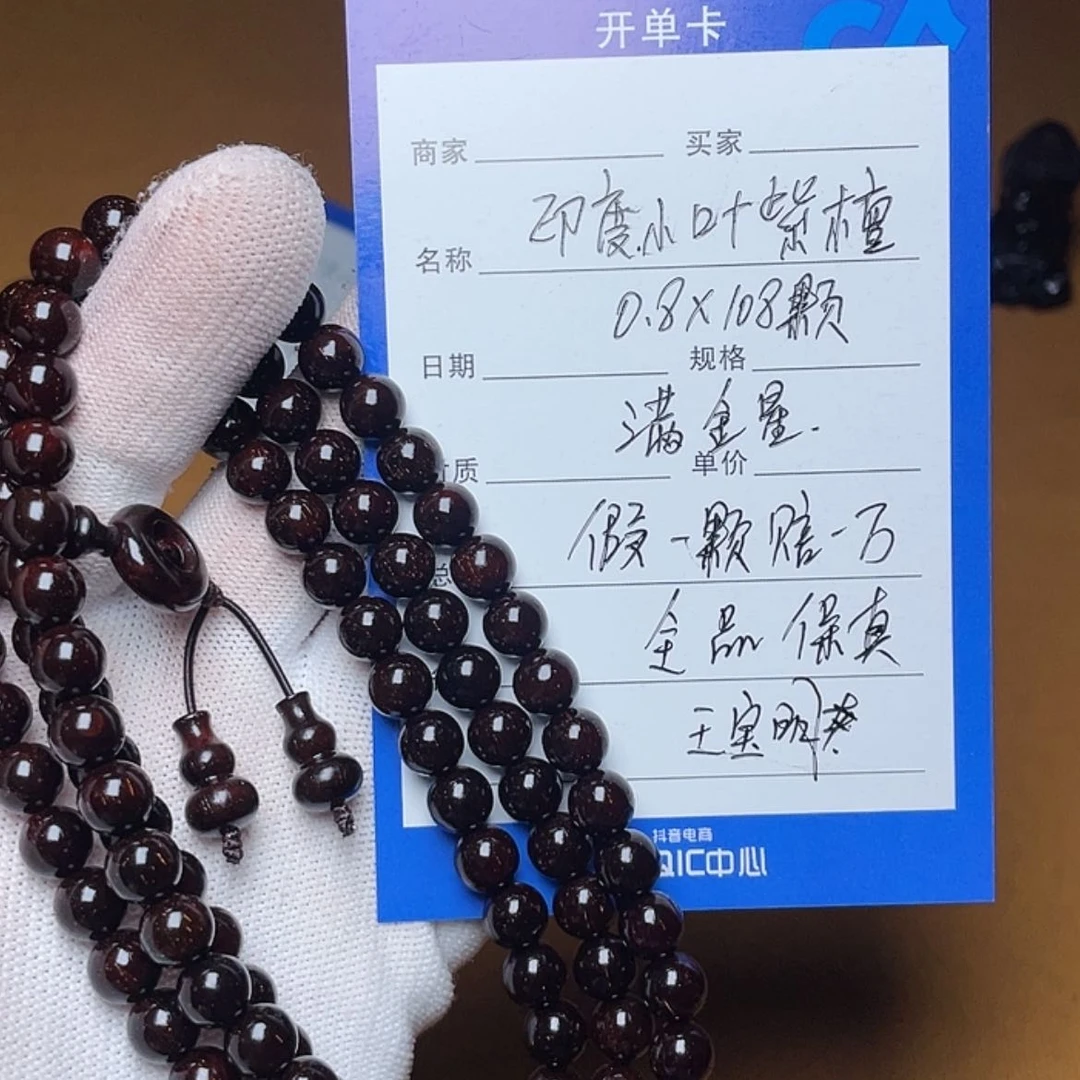 开单卡
商家 买家
印度小叶紫檀
名称
0.8×108颗
日期 规格
满金星.
质 单价
假一颗赔一万
总
全品保真
抖音电商
QIC中心